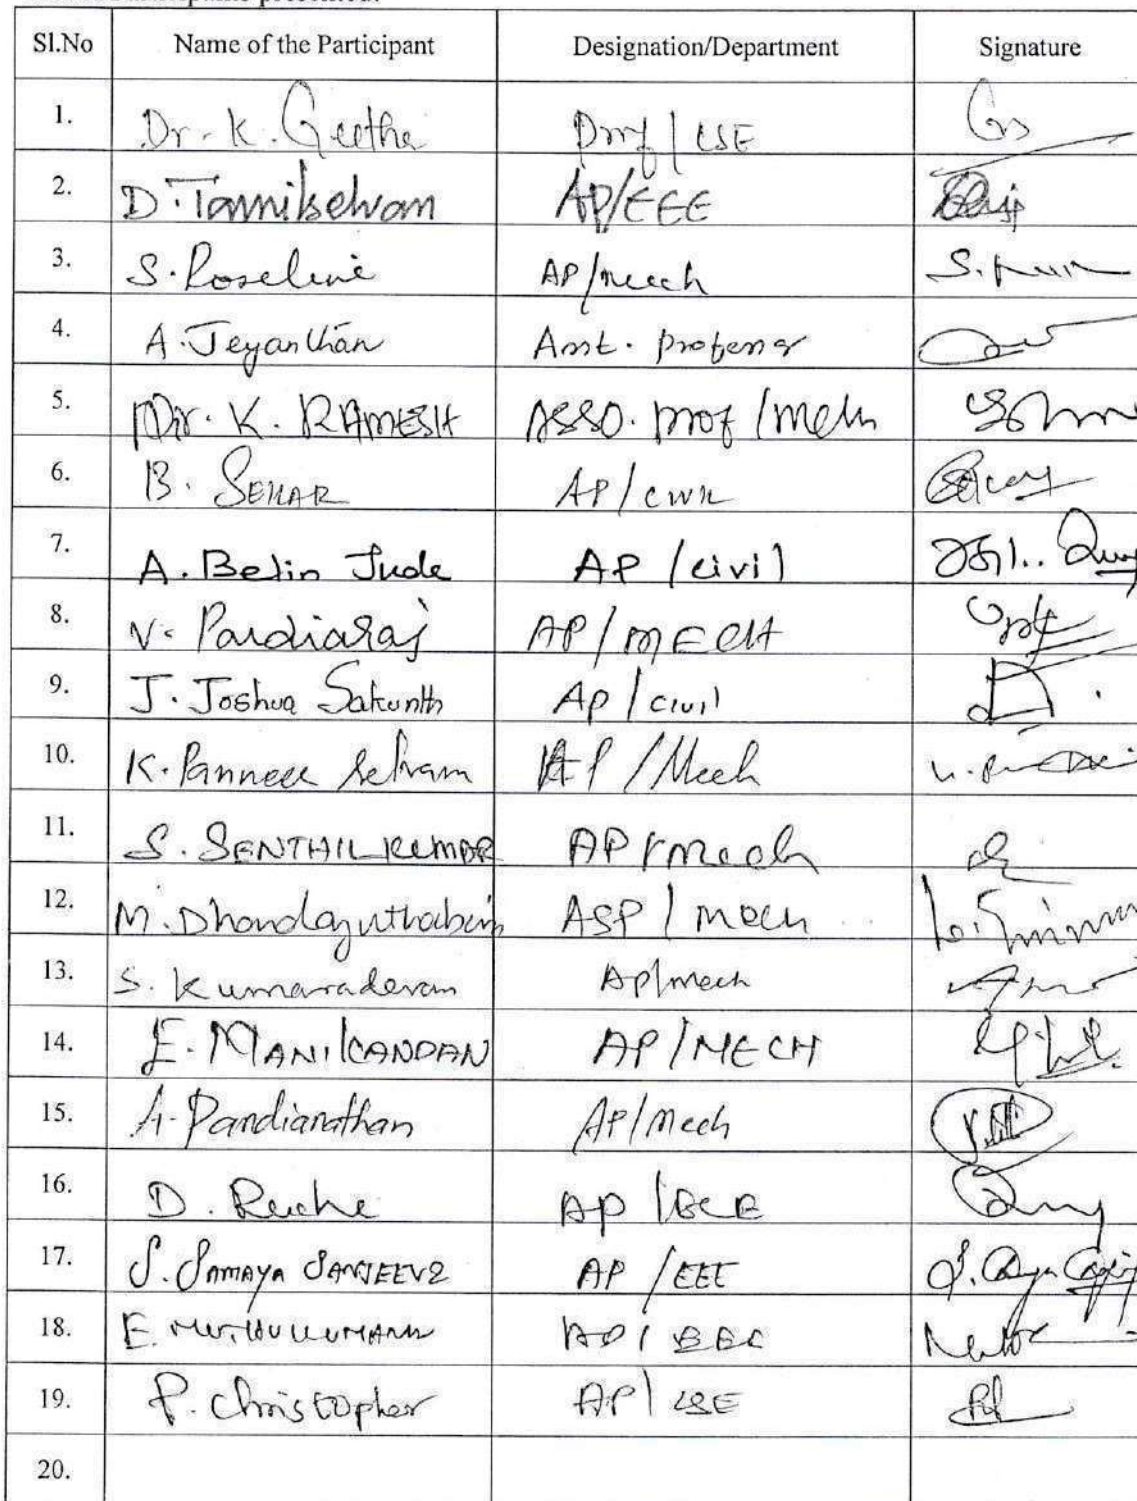 Sl.No Name of the Participant Designation/Department Signature
1. Dr. K. Geetha Prof / CSE
2. D. Tamilselvam AP/EEE
3. S. Roseline AP/mech
4. A. Jeyanthan Asst. professor
5. Dr. K. RAMESH ASSO. prof / mech
6. B. SEKAR AP/civil
7. A. Belin Jude AP / civil
8. V. Pandiaraj AP/MECH
9. J. Joshua Sakunth AP / civil
10. K. Panneer Selvam AP / Mech
11. S. SENTHILKUMAR AP / mech
12. M. Dhandayuthabani ASP / mech
13. S. Kumaradevan AP/mech
14. E. MANIKANDAN AP / MECH
15. A. Pandianathan AP/Mech
16. D. AP / ECE
17. S. SAMAYA SANJEEVI AP / EEE
18. E. MUTHUKUMARAN AP /
19. P. Christopher AP / CSE
20.